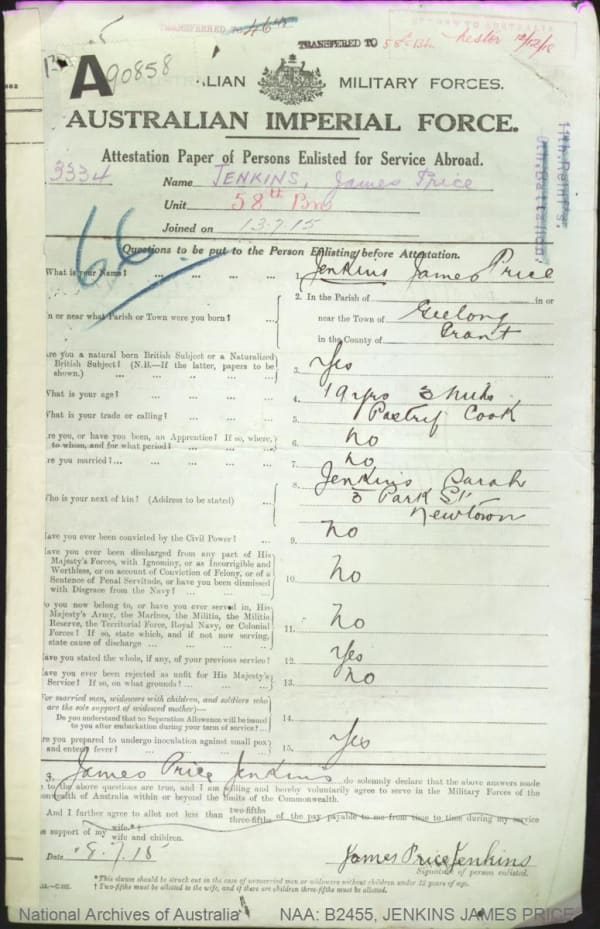 TRANSFERRED TO 46th
TRANSFERED TO 58th Bn
A 90858
LIAN MILITARY FORCES.
AUSTRALIAN IMPERIAL FORCE.
Attestation Paper of Persons Enlisted for Service Abroad.
3334
Name JENKINS, James Price
Unit 58th Bn
Joined on 13.7.15
11th Reinf's,
Battalion.
66
Questions to be put to the Person Enlisting before Attestation.
What is your Name? ... 1. Jenkins James Price
2. In the Parish of in or
In or near what Parish or Town were you born? ... near the Town of Geelong
in the County of Grant
Are you a natural born British Subject or a Naturalized
British Subject? (N.B.—If the latter, papers to be
shown.) ... 3. Yes
What is your age? ... 4. 19 yrs 3 mths
What is your trade or calling? ... 5. Pastry Cook
Are you, or have you been, an Apprentice? If so, where,
to whom, and for what period? ... 6. No
Are you married? ... 7. No
8. Jenkins Sarah
Who is your next of kin? (Address to be stated) ... 3 Park St
Newtown
Have you ever been convicted by the Civil Power? ... 9. No
Have you ever been discharged from any part of His
Majesty's Forces, with Ignominy, or as Incorrigible and
Worthless, or on account of Conviction of Felony, or of a
Sentence of Penal Servitude, or have you been dismissed
with Disgrace from the Navy? ... 10. No
Do you now belong to, or have you ever served in, His
Majesty's Army, the Marines, the Militia, the Militia
Reserve, the Territorial Force, Royal Navy, or Colonial
Forces? If so, state which, and if not now serving,
state cause of discharge ... 11. No
Have you stated the whole, if any, of your previous service? 12. Yes
Have you ever been rejected as unfit for His Majesty's
Service? If so, on what grounds? ... 13. No
For married men, widowers with children, and soldiers who
are the sole support of widowed mother)—
Do you understand that no Separation Allowance will be issued
to you after embarkation during your term of service? ... 14.
Are you prepared to undergo inoculation against small pox
and enteric fever? 15. Yes
James Price Jenkins do solemnly declare that the above answers made
to the above questions are true, and I am willing and hereby voluntarily agree to serve in the Military Forces of the
Commonwealth of Australia within or beyond the limits of the Commonwealth.
And I further agree to allot not less than two-fifths three-fifths of the pay payable to me from time to time during my service
support of my wife*† wife and children.
Date 7.15
James Price Jenkins
Signature of person enlisted.
*This clause should be struck out in the case of unmarried men or widowers without children under 18 years of age.
† Two-fifths must be allotted to the wife, and if there are children three-fifths must be allotted.
National Archives of Australia NAA: B2455, JENKINS JAMES PRICE